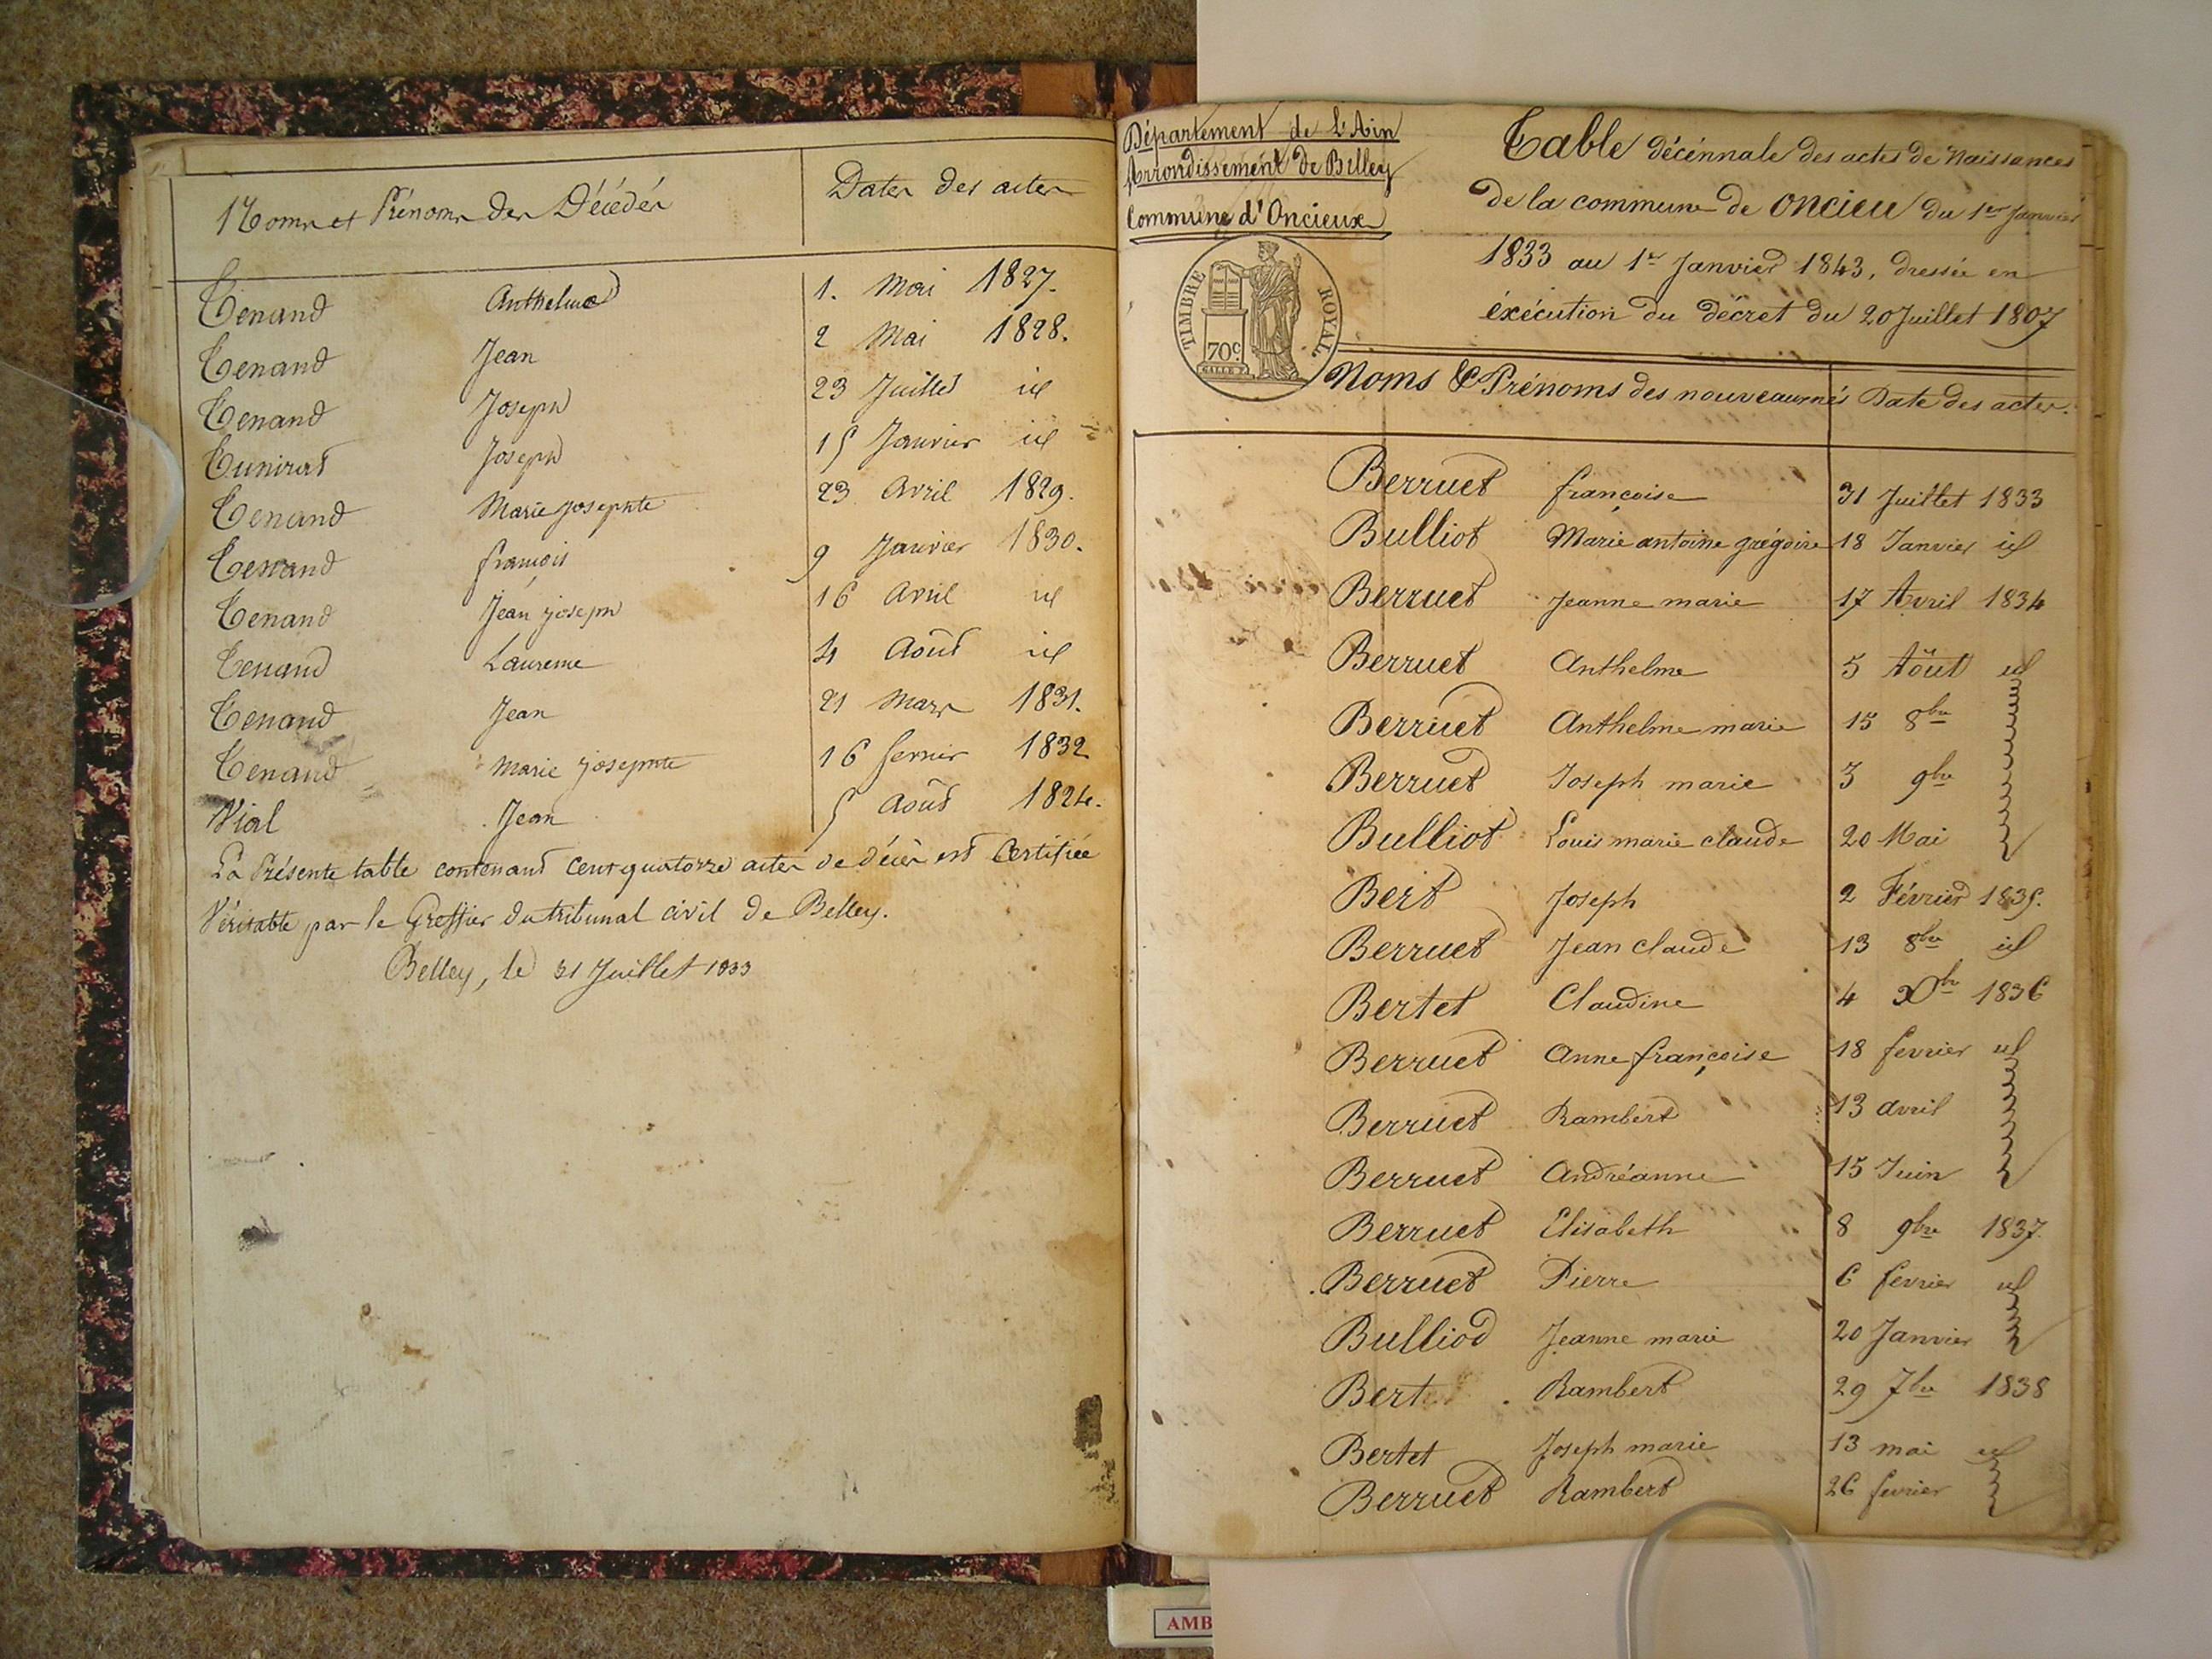 Noms et Prénoms des Décédés Dates des actes
Tenand Anthelme 1. Mai 1827.
Tenand Jean 2 Mai 1828.
Tenand Joseph 23 Juillet id
Joseph 15 Janvier id
Tenand Marie josephte 23 Avril 1829.
Tenand françois 9 Janvier 1830.
Tenand Jean joseph 16 Avril id
Tenand Laurence 4 Août id
Tenand Jean 21 Mars 1831.
Tenand Marie josephte 16 fevrier 1832
Vial Jean 5 Août 1824.
La Présente table contenant cent quatorze actes de décès est Certifiée
Véritable par le Greffier du tribunal civil de Belley.
Belley, le 31 Juillet 1833
Département de L'Ain
Arrondissement de Belley
Commune d'Oncieux
TIMBRE ROYAL
70c
Table décénnale des actes de Naissances
de la commune de Oncieu du 1er Janvier
1833 au 1er Janvier 1843, dressée en
éxécution du décret du 20 Juillet 1807
Noms & Prénoms des nouveaunés Date des actes.
Berruet françoise 31 Juillet 1833
Bulliot Marie antoine grégoire 18 Janvier id
Berruet Jeanne marie 17 Avril 1834
Berruet Anthelme 5 Août id
Berruet Anthelme marie 15 8bre
Berruet Joseph marie 3 9bre
Bulliot Louis marie claude 20 Mai
Bert Joseph 2 Février 1835.
Berruet Jean claude 13 8bre id
Bertet Claudine 4 Xbre 1836
Berruet Anne françoise 18 fevrier id
Berruet Rambert 13 avril
Berruet Andréanne 15 Juin
Berruet Elisabeth 8 9bre 1837.
Berruet Pierre 6 fevrier id
Bulliod Jeanne marie 20 Janvier
Bert Rambert 29 7bre 1838
Bertet Joseph marie 13 mai id
Berruet Rambert 26 fevrier
AMB